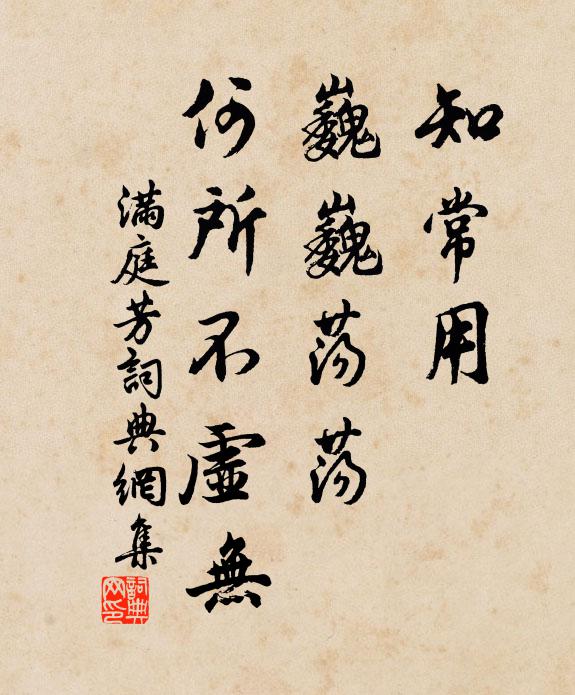 知常用
巍巍蕩蕩
何所不虛無
滿庭芳詞典網集
詞典网印